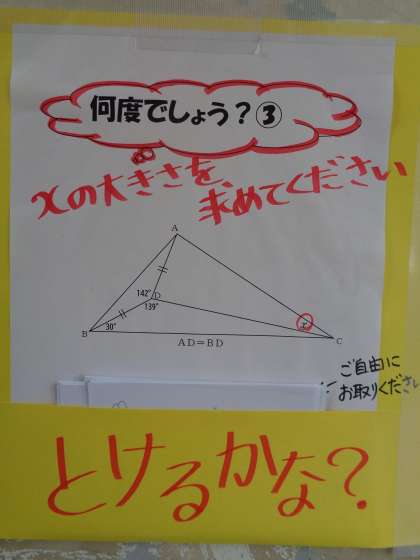 何度でしょう?③
xの大きさを、
求めてください
A
142°
D
139°
B
30°
x
C
AD=BD
ご自由に
お取りください
とけるかな?